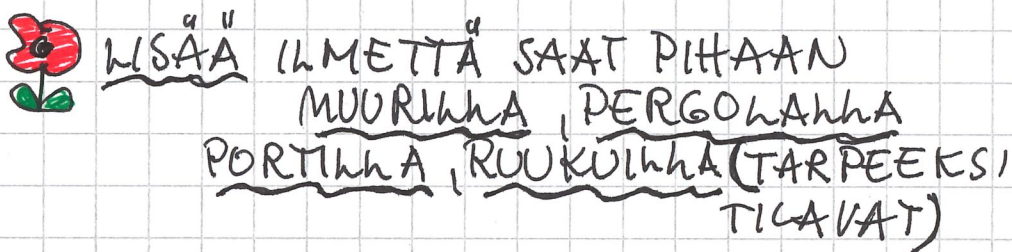 LISÄÄ ILMETTÄ SAAT PIHAAN
MUURILLA, PERGOLALLA
PORTILLA, RUUKUILLA (TARPEEKSI
TILAVAT)